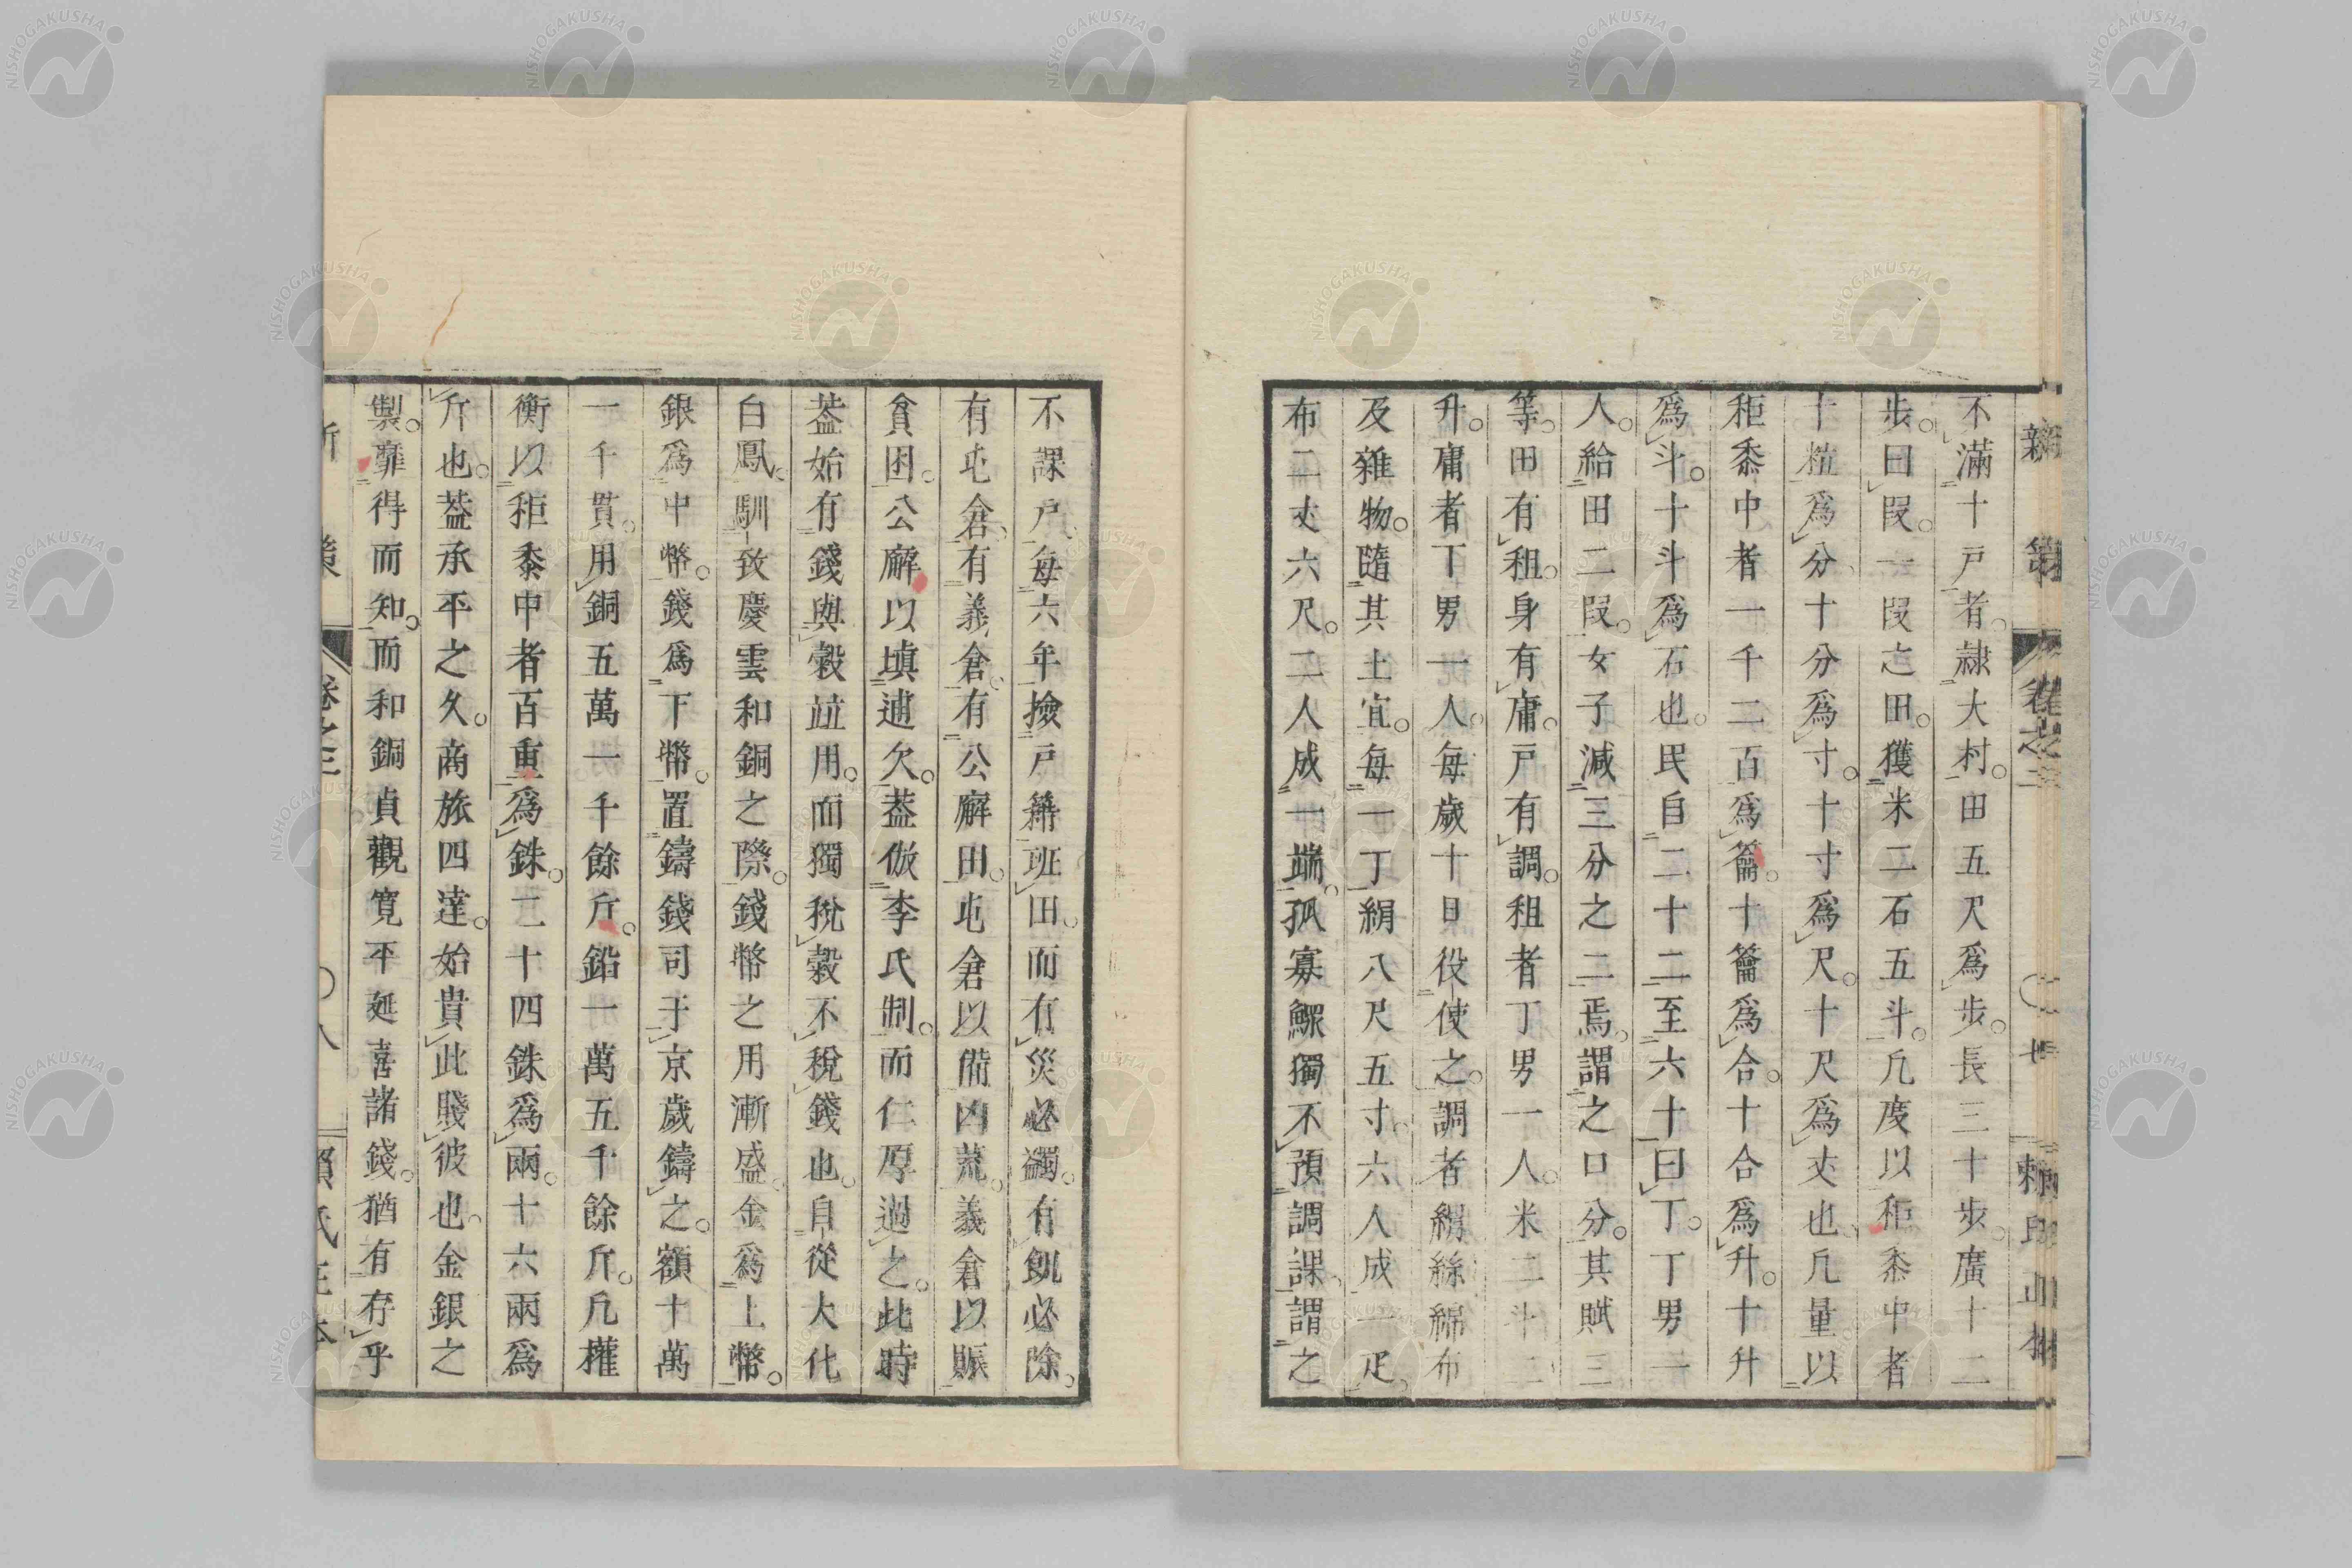 新策 卷之三 〇七
不滿十戸者。隷大村。田五尺爲步。長三十步。廣十二
步。曰段。一段之田。獲米二石五斗。凢度以秬黍中者
十粒爲分十分爲寸。十寸爲尺。十尺爲丈也凢量以
秬黍中者一千二百爲籥。十籥爲合。十合爲升。十升
爲斗。十斗爲石也。民自二十二至六十曰丁。丁男一
人。給田二段。女子減三分之二焉。謂之口分。其賦三
等。田有租。身有庸。戸有調。租者丁男一人。米二斗二
升。庸者丁男一人。每歲十日役使之。調者絹絲綿布
及雜物。隨其土宜。每一丁絹八尺五寸。六人成一疋。
布二丈六尺。二人成一端。孤寡鰥獨不預調課。謂之
不課戸、每六年撿戸籍班田。而有災必蠲。有飢必除。
有屯倉、有義倉。有公廨田。屯倉以備凶荒。義倉以賑
貧困。公廨以塡逋欠。葢倣李氏制。而仁厚過之。此時
葢始有錢與穀竝用。而獨稅穀不稅錢也。自從大化
白鳳。馴致慶雲和銅之際。錢幣之用漸盛。金爲上幣。
銀爲中幣。錢爲下幣。置鑄錢司于京歲鑄之。額十萬
一千貫。用銅五萬一千餘斤。鉛一萬五千餘斤。凢權
衡以秬黍中者百重爲銖。二十四銖爲兩。十六兩爲
斤也。葢承平之久。商旅四達。始貴此賤彼也。金銀之
製。靡得而知。而和銅貞觀寬平延喜諸錢。猶有存乎
卷之三 〇八